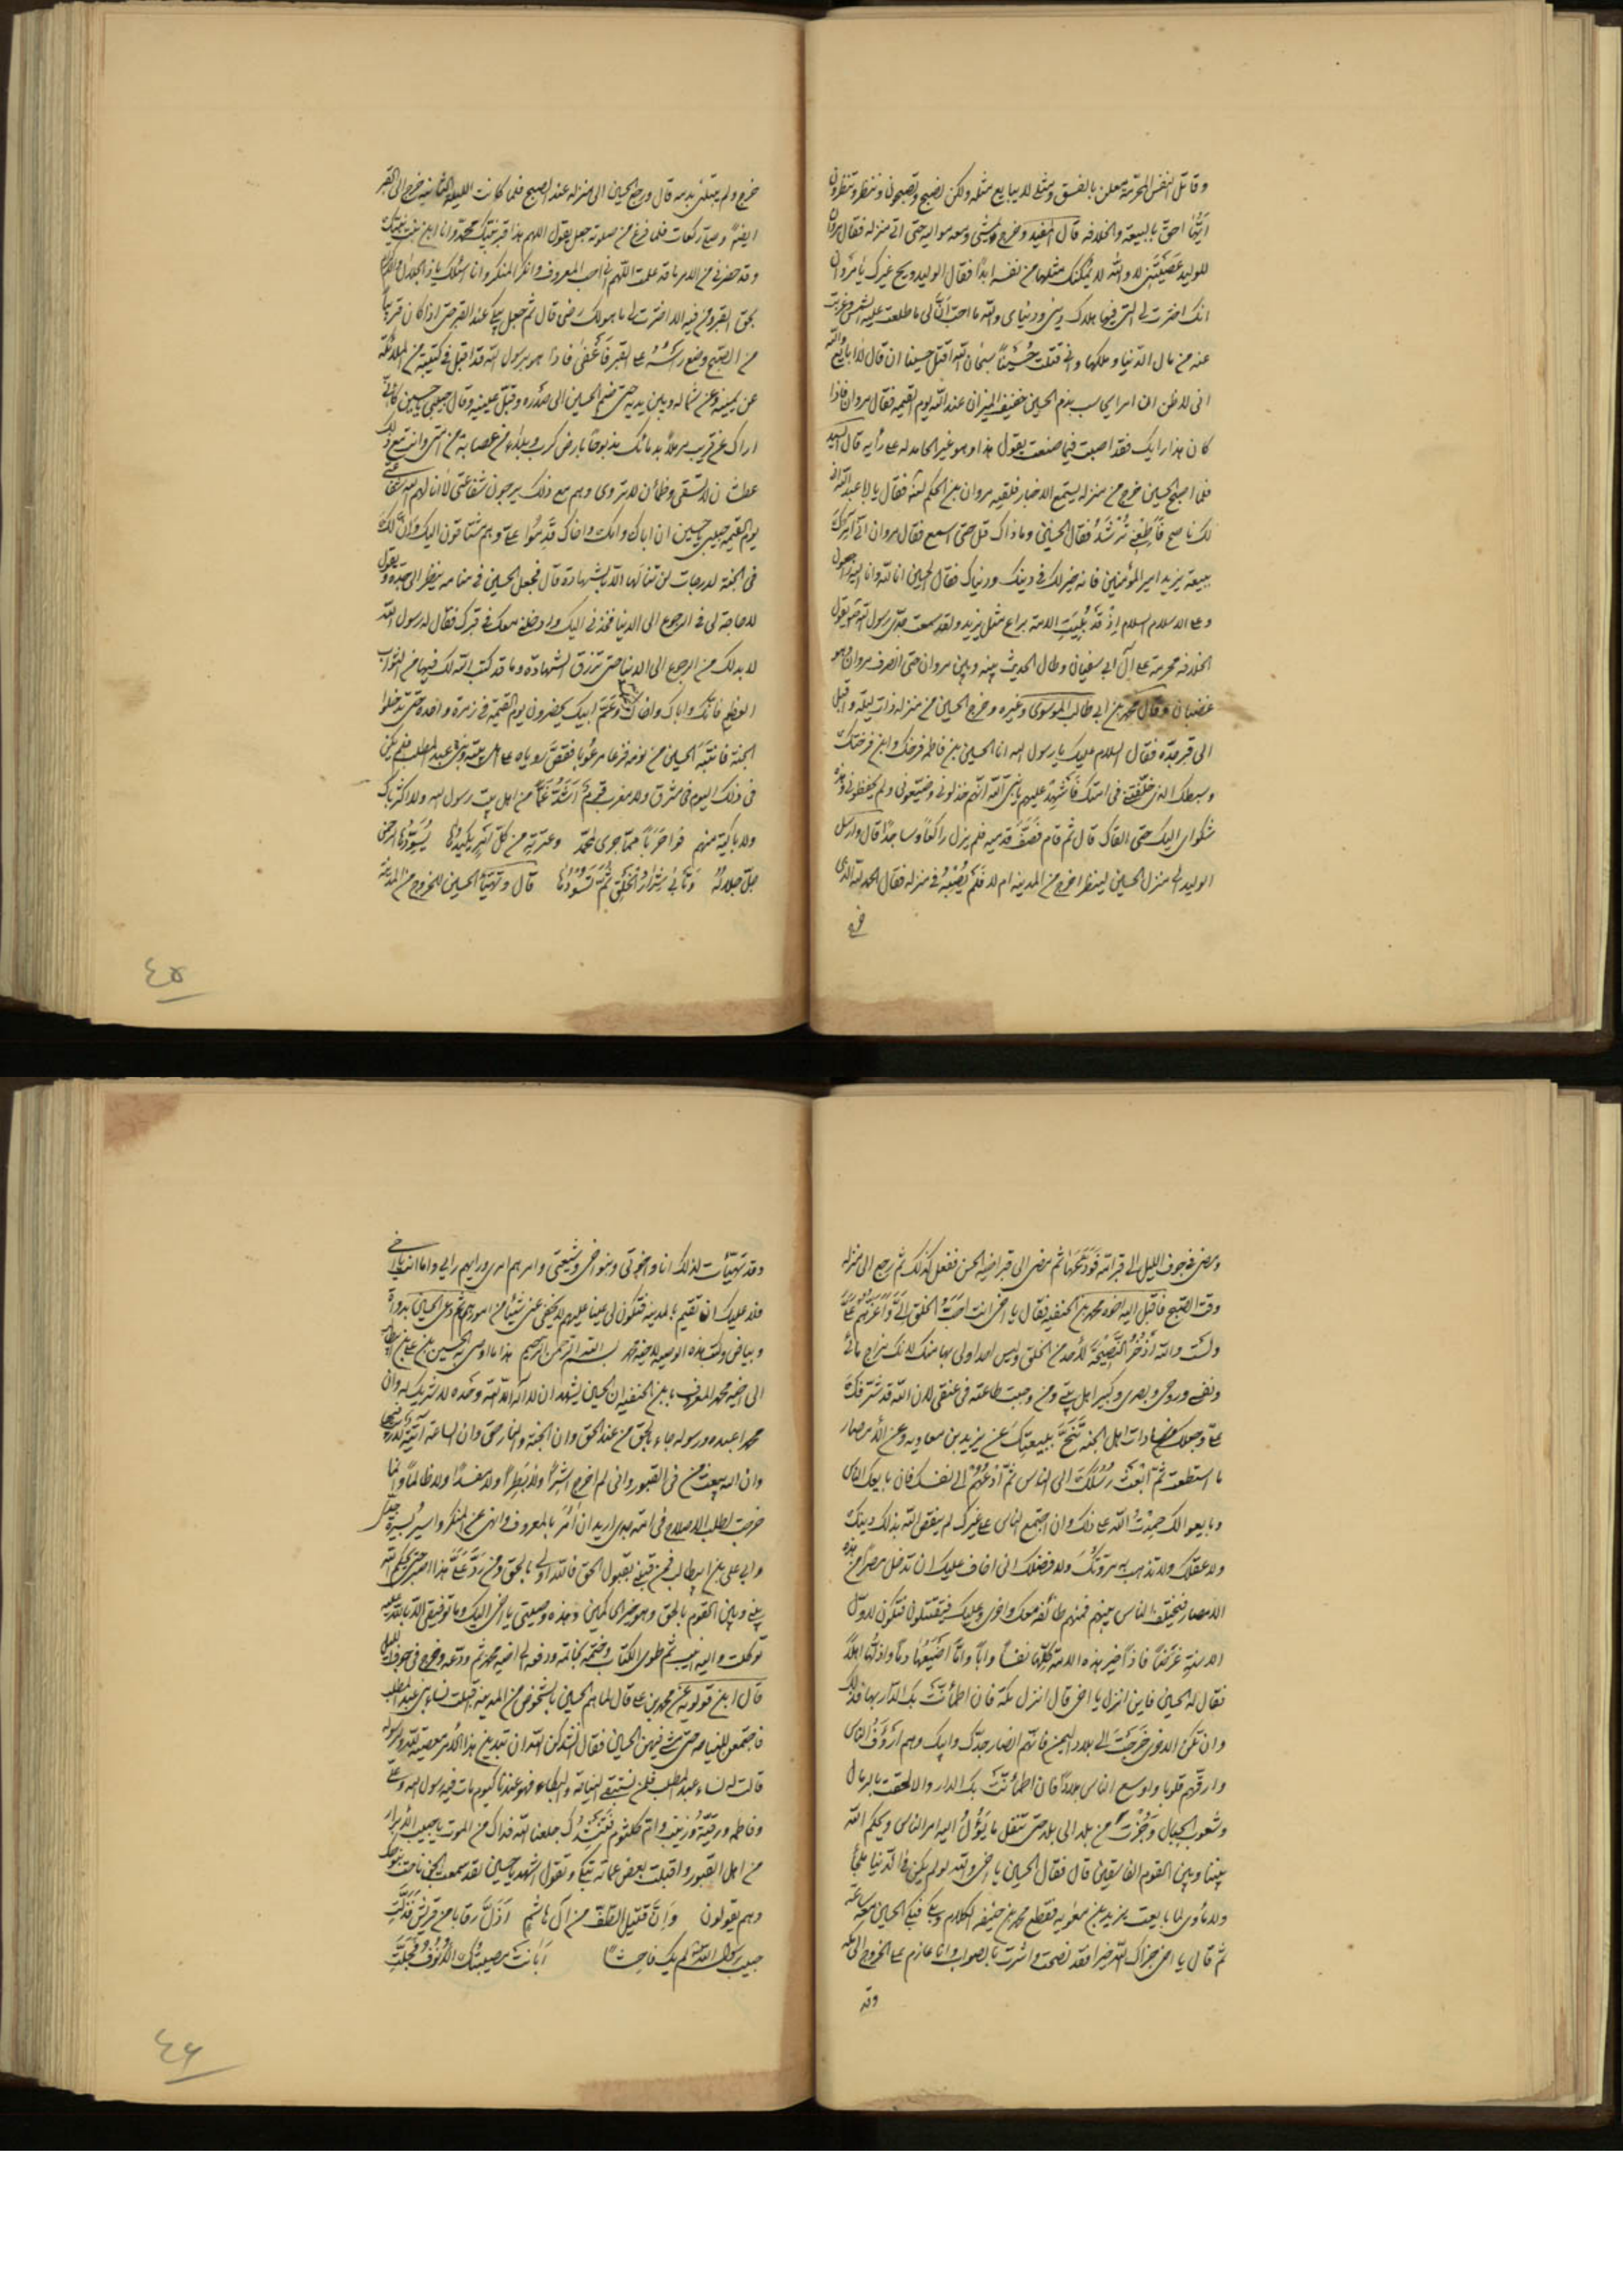 وقاتل النفس المحرمة معلن بالفسق ومثلي لا يبايع مثله ولكن نصبح وتصبحون وننظر وتنظرون
اَيُّنا احق بالبيعة والخلافه قال المفيد وخرج يمشى ومعه مواليه حتى اتى منزله فقال مروان
للوليد عَصَيتَنى لا والله لا يُمكنك مثلها من نفسه ابدًا فقال الوليد ويح غيرك يا مروان
انك اخترت لى التى فيها هلاك دينى ودنياى والله ما احبّ اَنَّ لى ما طلعت عليه الشمس وغربت
عنه من مال الدنيا وملكها وانى قتلت حُسَيْنًا سبحان الله اقتل حسينا ان قال لا ابايع والله
انى لا ظن ان امرا يحاسب بدم الحسين خفيف الميزان عند الله يوم القيمه فقال مروان فاذا
كان هذا رايك فقد اصبت فيما صنعت يقول هذا وهو غير الحامد له على رأيه قال السيد
فلما اصبح الحسين خرج من منزله يستمع الاخبار فلقيه مروان بن الحكم لعنه فقال يا ابا عبد الله انى
لك ناصح فَاَطِعْنى تُرْشَدْ فقال الحسين وما ذاك قل حتى اسمع فقال مروان انى آمرك
ببيعة يزيد امير المؤمنين فانه خير لك فى دينك ودنياك فقال الحسين انا لله وانا اليه راجعون
وعلى الاسلام السلام اِذْ قَدْ بُلِيَتِ الامة براع مثل يزيد ولقد سمعت جدّى رسول الله يقول
الخلافه محرمة على آل ابى سفيان وطال الحديث بينه وبين مروان حتى انصرف مروان وهو
غضبان وقال محمد بن ابى طالب الموسوى وغيره وخرج الحسين من منزله ذات ليلة واقبل
الى قبر جدّه فقال السلام عليك يا رسول الله انا الحسين بن فاطمه فرخك وابن فرختك
وسبطك الذى خلّفتنى فى امتك فَاشْهَدْ عليهم يا نبى الله انّهم خذلونى وضيّعونى ولم يحفظونى وهذه
شكواى اليك حتى القاك قال ثم قام فَصَفَّ قدميه فلم يزل راكعًا وساجدًا قال وارسل
الوليد الى منزل الحسين لينظر اخرج من المدينه ام لا فَلَمْ يُصِبْهُ فى منزله فقال الحمد لله الذى
خرج
خرج ولم يبتلنى بدمه قال ورجع الحسين الى منزله عند الصبح فلما كانت الليلة الثانيه خرج الى القبر
ايضًا وصلى ركعات فلما فرغ من صلوته جعل يقول اللهم هذا قبر نبيّك محمد وانا ابن بنت نبيّك
وقد حضرنى من الامر ما قد علمت اللّهم انى احب المعروف وانكر المنكر وانا اسئلك يا ذا الجلال والاكرام
بحق القبر ومن فيه الا اخترت لى ما هو لك رضى قال ثم جعل يبكى عند القبر حتى اذا كان قريبًا
من الصبح وضع رأسَهُ على القبر فَاَغْفى فاذا هو برسول الله قد اقبل فى كتيبة من الملائكة
عن يمينه وعن شماله وبين يديه حتى ضم الحسين الى صدره وقبّل عينيه وقال حبيبى يا حسين كانّى
اراك عن قريب مرملًا بدمائك مذبوحًا بارض كرب وبلاء من عصابة من امتى وانت مع ذلك
عطشان لا تسقى وظمأن لا تروى وهم مع ذلك يرجون شفاعتى لا انالهم الله شفاعتى
يوم القيمة حبيبى يا حسين ان اباك وامك واخاك قَدِمُوا علىّ وهم مشتاقون اليك واِنَّ لك
فى الجنة لدرجات لن تنالها الّا بالشهادة قال فجعل الحسين فى منامه ينظر الى جدّه ويقول
لا حاجة لى فى الرجوع الى الدنيا فخذنى اليك وادخلنى معك فى قبرك فقال له رسول الله
لا بد لك من الرجوع الى الدنيا حتى ترزق الشهادة وما قد كتب الله لك فيها من الثواب
العظيم فانّك واباك واخاك وعمّك وعَمَّ ابيك يحضرون يوم القيمة فى زمرة واحدة حتى تدخلوا
الجنة فانتَبَهَ الحسين من نومه فزعا مرعُوبا فقصّ رويّاه على اهل بيته وبنى عبد المطلب فلم يكن
فى ذلك اليوم فى مشرق ولا مغرب قومٌ اَشَدَّ غَمًّا من اهل بيت رسول الله ولا اكثر باك
ولا باكية منهم فواحَرَبًا ممّا جرى لمحمّد وعترته من كلّ يكيدُها يُسَوِّدُها الرحمن
جلّ جلاله وتأبى شِرارُ الخلقِ ثمَّ تَسُودُها قال وتَهَيَّأ الحسين للخروج من المدينة
٤٥
ومضى فى جوف الليل الى قبر امّه فَوَدَّعَها ثم مضى الى قبر اخيه الحسن ففعل كذلك ثم رجع الى منزله
وقت الصبح فَاَقْبل اليه اخوه محمد بن الحنفيه فقال يا اخى انت احَبُّ الخلق اِلَىَّ وَاَعَزُّهم عَلَىَّ
ولست والله اَدَّخِرُ النَّصِيْحَةَ لأحد من الخلق وليس احد اولى بها منك لانك مزاج مائى
ونفسى وروحى وبصرى وكبير اهل بيتى ومن وجبت طاعته فى عنقى لان الله قد شرّفك
علىّ وجعلك من سادات اهل الجنه تَنَحَّ ببيعتك عن يزيد بن معاويه وعن الأمصار
ما استطعت ثمّ ابْعَثْ رُسُلَكَ الى الناس ثُمَّ اُدْعُهُمْ الى نفسك فان بايعك الناس
وبايعوا لك حمِدْتُ الله على ذلك وان اجتمع الناس على غيرك لم ينقص الله بذلك دينك
ولا عقلك ولا تذهب به مروّتك ولا فضلك انى اخاف عليك ان تدخل مصرًا من هذه
الامصار فيختلف الناس بينهم فمنهم طائفه معك واخرى عليك فيقتتلون فتكون لاوّل
الاسِنّةِ غرضًا فاذًا خير هذه الامة كلّها نفسًا وابًا وامًّا اَضْيَعُها دمًا واذلّها اهلًا
فقال له الحسين فاين انزل يا اخى قال انزل مكّة فان اطمأنَّتْ بك الدّار بها فذلك
وان تكن الاخرى خَرَجْتَ الى بلاد اليمن فانّهم انصار جدّك وابيك وهم ارْؤَفُ الناس
وارقّهم قلوبا واوسع الناس بلادًا فان اطمأنَّتْ بك الدار والا لحقت بالرمال
وشعوب الجبال وجُزْتَ من بلد الى بلد حتى تنظر ما يَؤُلُ اليه امر الناس ويحكم الله
بيننا وبين القوم الفاسقين قال فقال الحسين يا اخى والله لو لم يكن فى الدّنيا ملجأ
ولا مأوى لما بايعت يزيد بن معويه فقطع محمد بن حنيفه الكلام وبكى فبكى الحسين معه ساعة
ثم قال يا اخى جزاك الله خيرا فقد نصحت واشرت بالصواب وانا عازم على الخروج الى مكه
وقد
وقد تهيّأت لذلك انا واخوتى وبنو اخى وشيعتى وامرهم امرى ورايهم رايى واما انت يا اخى
فلا عليك ان تقيم بالمدينه فتكون لى عينا عليهم لا يخفى عنى شيئًا من امورهم ثم دعى الحسين بدواة
وبياض وكتب هذه الوصية لاخيه محمد بسم الله الرحمن الرحيم هذا ما اوصى به الحسين بن على بن ابيطالب
الى اخيه محمد المعروف بابن الحنفيه ان الحسين يشهد ان لا اله الا الله وحده لا شريك له وان
محمدا عبده ورسوله جاء بالحق من عند الحق وان الجنة والنار حق وان الساعة آتية لا ريب فيها
وان الله يبعث من فى القبور وانى لم اخرج اشرًا ولا بَطِرًا ولا مفسدًا ولا ظالمًا وانما
خرجت لطلب الاصلاح فى امّة جدى اريد ان آمُرَ بالمعروف وانهى عن المنكر واسيرُ بسيرة جدى
وابى على بن ابيطالب فمن قبلنى بقبول الحق فالله اولى بالحق ومن رَدَّ عَلَىَّ هذا اصبر حتى يحكم الله
بينى وبين القوم بالحق وهو خير الحاكمين وهذه وصيتى يا اخى اليك وما توفيقى الا بالله عليه
توكلت واليه انيب ثم طوى الكتاب وختمه بخاتمه ودفعه الى اخيه محمد ثم ودّعه وخرج فى جوف الليل
قال ابن قولويه عن محمد بن على قال لما هم الحسين بالشخوص من المدينة اقبلت نساء بنى عبد المطلب
فاجتمعن للنياحة حتى مشى فيهن الحسين فقال انشدكن الله ان تبدين هذا الأمر معصية لله ولرسوله
قالت له نساء عبد المطلب فلمن نستبقى النياحة والبكاء فهو عندنا كيوم مات فيه رسول الله وعلى
وفاطمه ورقيّة وزينب وام كلثوم فَنُنْشِدُكَ جعلنا الله فداك من الموت يا حبيب الأبرار
من اهل القبور واقبلت بعض عماته تبكى وتقول اشهد يا حسين لقد سمعت الجن ناحت بنوحك
وهم يقولون وَاِنَّ قتيل الطَّفّ من آل هاشمٍ اَذَلَّ رقابا من قريش فَذَلَّتِ
حبيب رسول الله لم يك فاحشًا اَبَانَتْ مصيبتُك الأُنُوفُ وَجَلَّتِ
٤٦